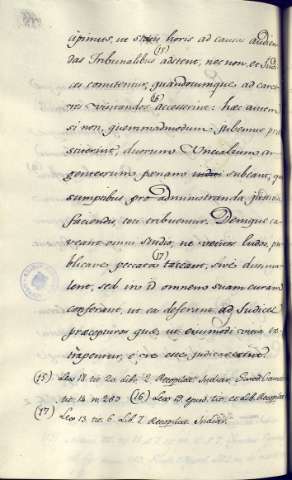 cipimus, ut statis horis ad causas audien
das Tribunalibus adstent, nec non, et Judi
ces comitentur, quandocumque ad carce
res visitandos accesserint: hæc autem
si non quemadmodum jubemus præ
stiterint, duorum Uncialium ar
genteorum pœnam subeant, qui
sumptibus pro administranda justitia
faciendis, tribuentur. Denique ca
veant omni studio, ne ludos, pu
blicave peccata taceant, sive dissimu
lent, sed in id omnem suam curam
conferant, ut ea deferant ad Judices
præcepturos quæ, ut ejusmodi vitia ex
tirpentur, e re esse judicaverint.
(15) Lex 18 tit 20 lib. 2 Recopilat Indiar.
tit. 14 n 203 (16) Lex 19 ejusd. tit. et Lib. Recopilat
(17) Lex 13 tit. 6 Lib. 7 Recopilat Indiar.